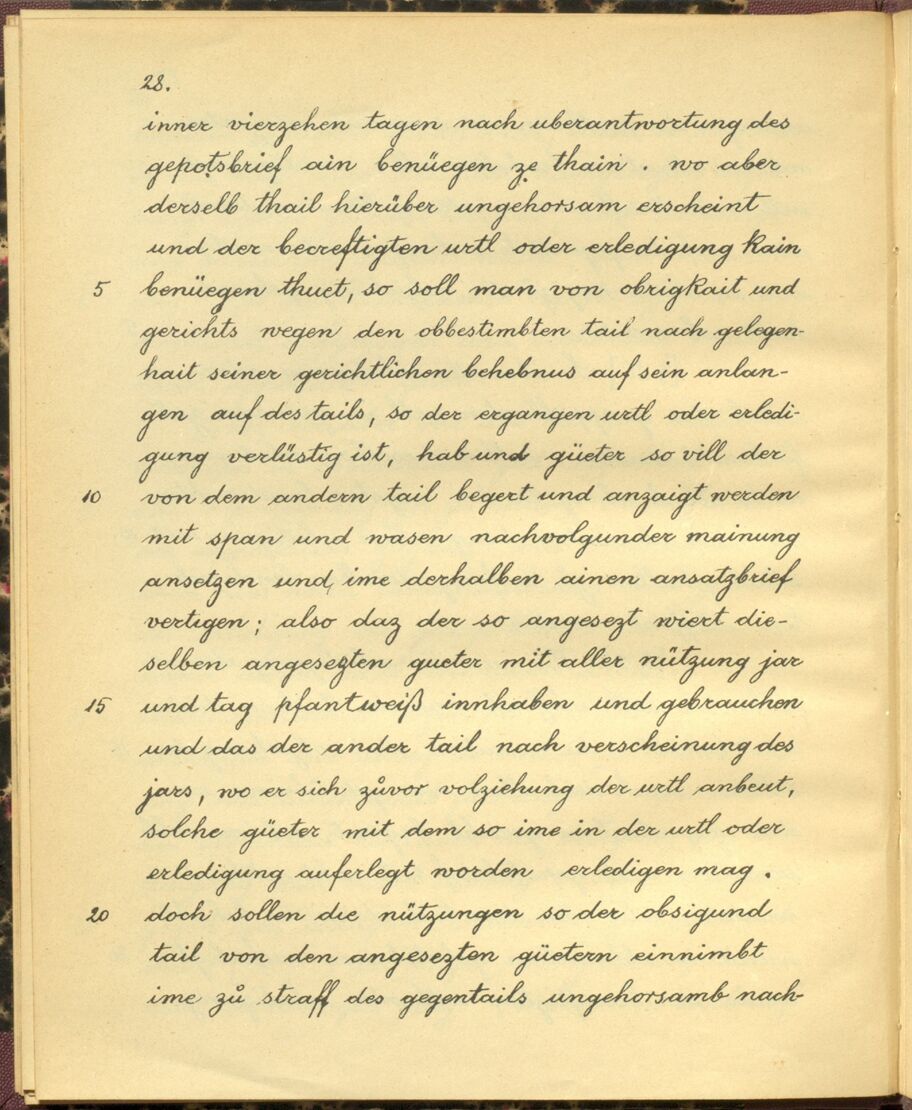 28.
inner vierzehen tagen nach uberantwortung des
gepotsbrief ain benüegen ze thain . wo aber
derselb thail hierüber ungehorsam erscheint
und der becreftigten urtl oder erledigung kain
5 benüegen thuet, so soll man von obrigkait und
gerichts wegen den obbestimbten tail nach gelegen-
hait seiner gerichtlichen behebnus auf sein anlan-
gen auf des tails, so der ergangen urtl oder erledi-
gung verlüstig ist, hab und güeter so vill der
10 von dem andern tail begert und anzaigt werden
mit span und wasen nachvolgunder mainung
ansetzen und ime derhalben ainen ansatzbrief
vertigen ; also daz der so angesezt wiert die-
selben angesezten gueter mit aller nützung jar
15 und tag pfantweiß innhaben und gebrauchen
und das der ander tail nach verscheinung des
jars, wo er sich zůvor volziehung der urtl anbeut,
solche güeter mit dem so ime in der urtl oder
erledigung auferlegt worden erledigen mag .
20 doch sollen die nützungen so der obsigund
tail von den angesezten güetern einnimbt
ime zů straff des gegentails ungehorsamb nach-